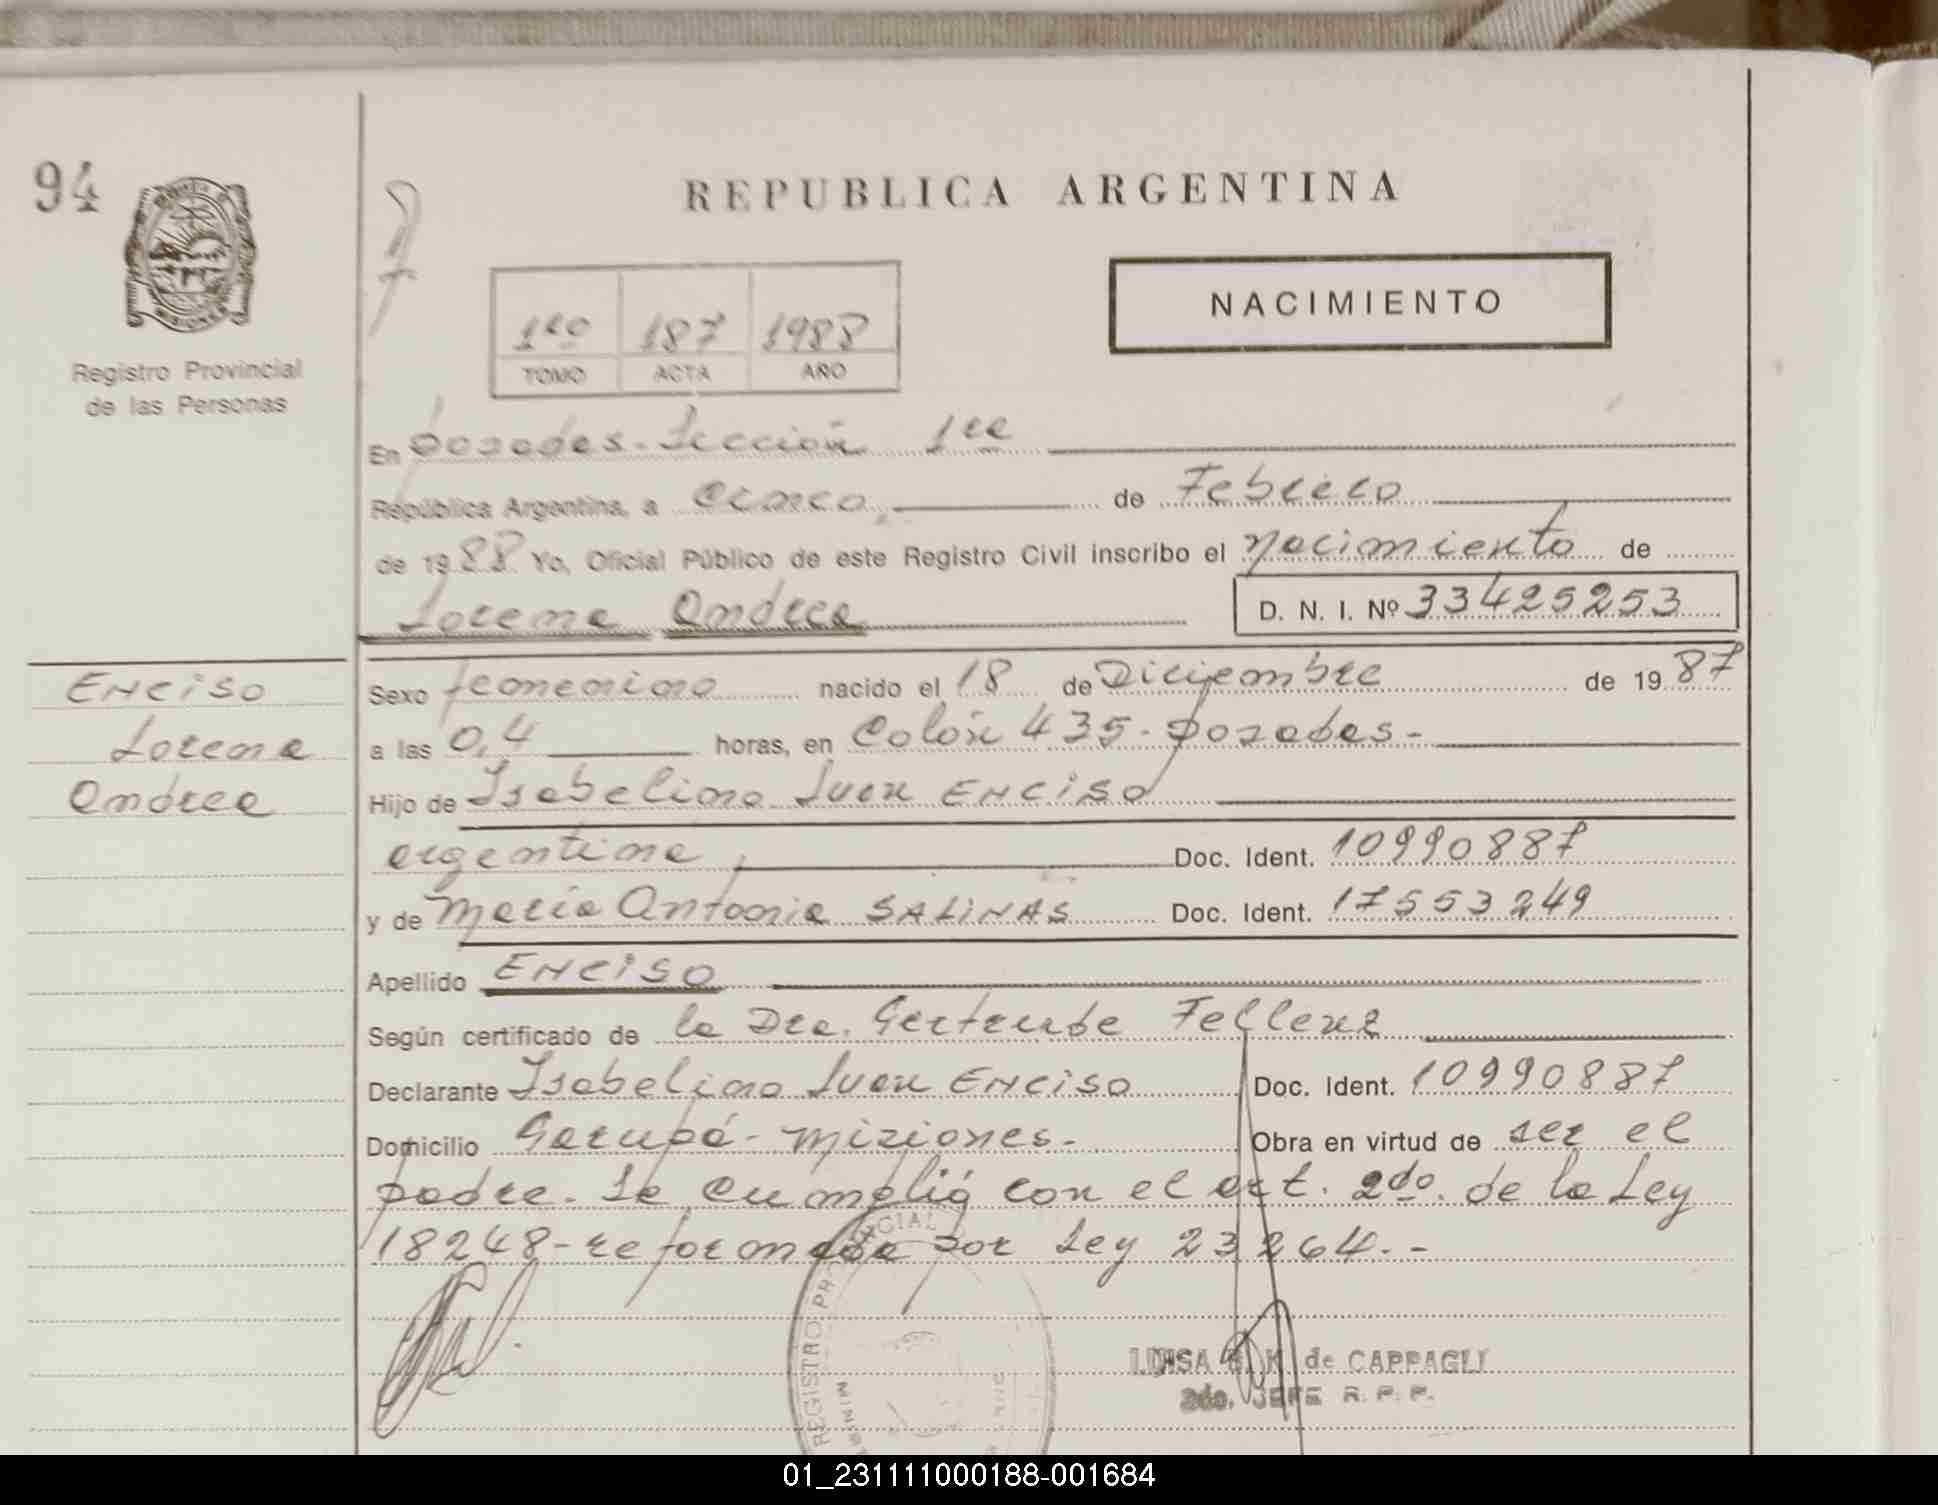 94
REPUBLICA ARGENTINA
NACIMIENTO
1ro 187 1988
TOMO ACTA AÑO
Registro Provincial
de las Personas
MISIONES
En Posadas - Sección 1ra
República Argentina, a Cinco de Febrero
de 1988 Yo, Oficial Público de este Registro Civil inscribo el Nacimiento de
Lorena Andrea D. N. I. Nº 33425253
Enciso
Lorena
Andrea
Sexo femenino nacido el 18 de Diciembre de 1987
a las 0,4 horas, en Colón 435 - Posadas -
Hijo de Isabelino Juan ENCISO
argentina, Doc. Ident. 10990887
y de María Antonia SALINAS Doc. Ident. 17553249
Apellido ENCISO
Según certificado de la Dra. Gertrude Fellenz
Declarante Isabelino Juan ENCISO Doc. Ident. 10990887
Domicilio Garupá - Misiones - Obra en virtud de ser el
padre - Se cumplió con el art. 2do. de la Ley
18248 - reformada por Ley 23264. -
REGISTRO PROVINCIAL
LUISA K. de CAPPAGLI
2do. JEFE R. P. P.
01_231111000188-001684